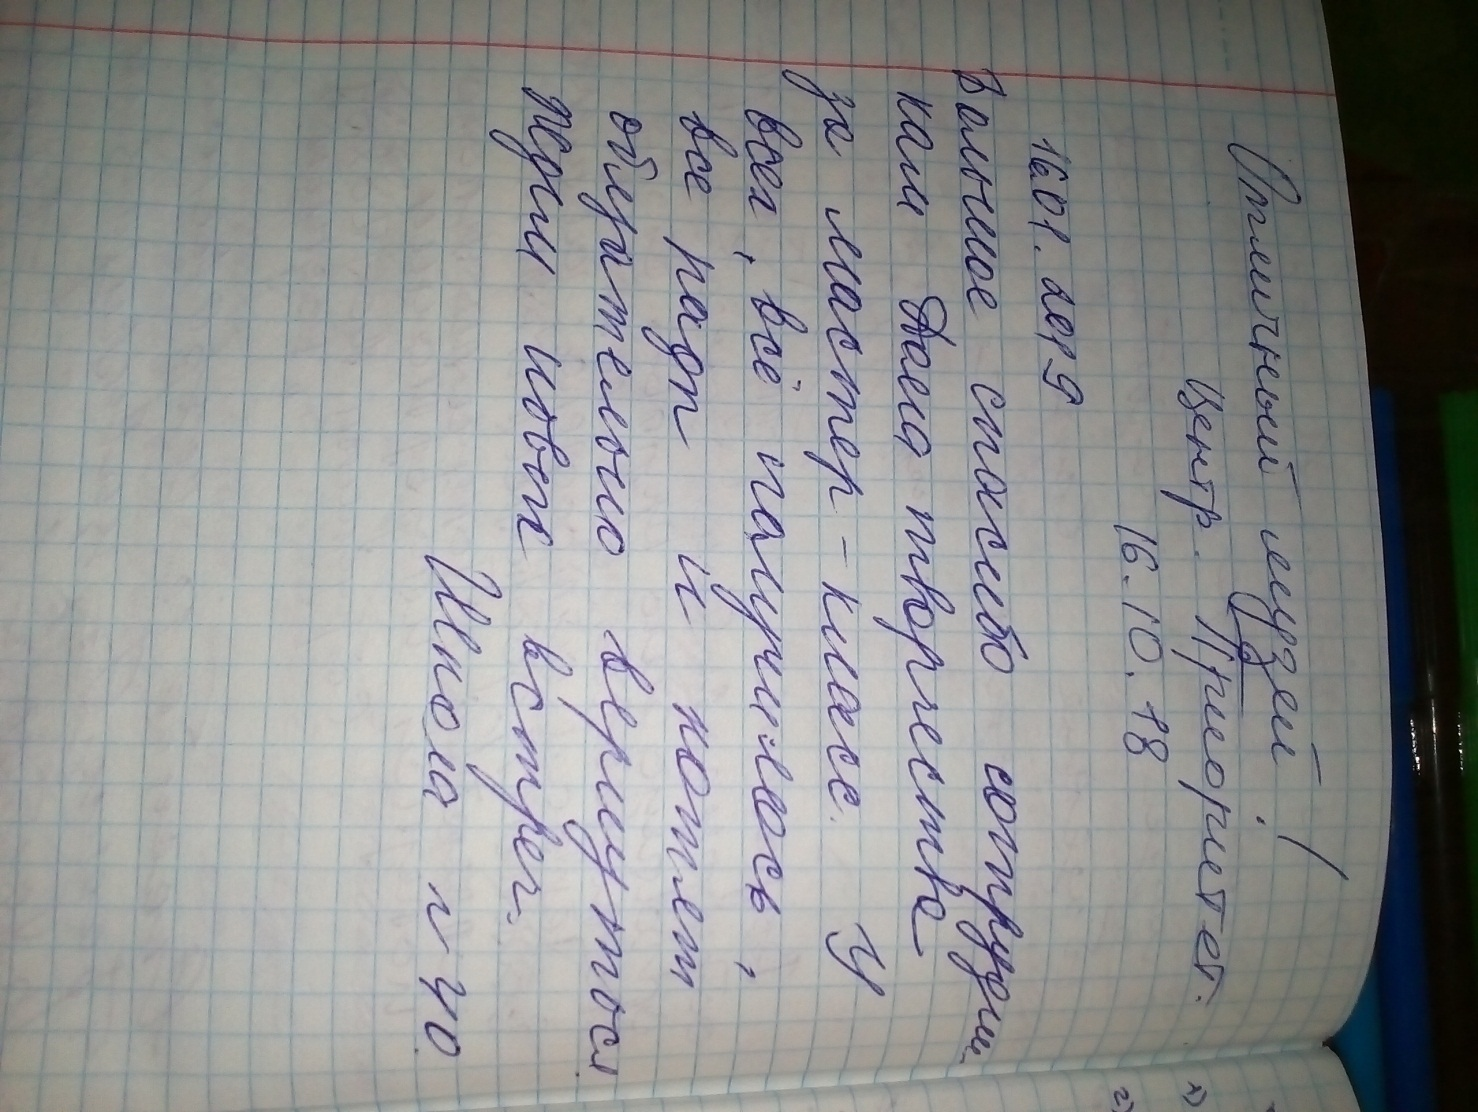 Отличный музей!
Центр. Приоритет.
16.10.18
16.01.2019
Большое спасибо сотрудни
кам Дома творчества
за мастер-класс. У
всех, всё получилось,
все рады и хотят
обязательно вернуться
Ждём новых встреч.
Школа № 40
2)